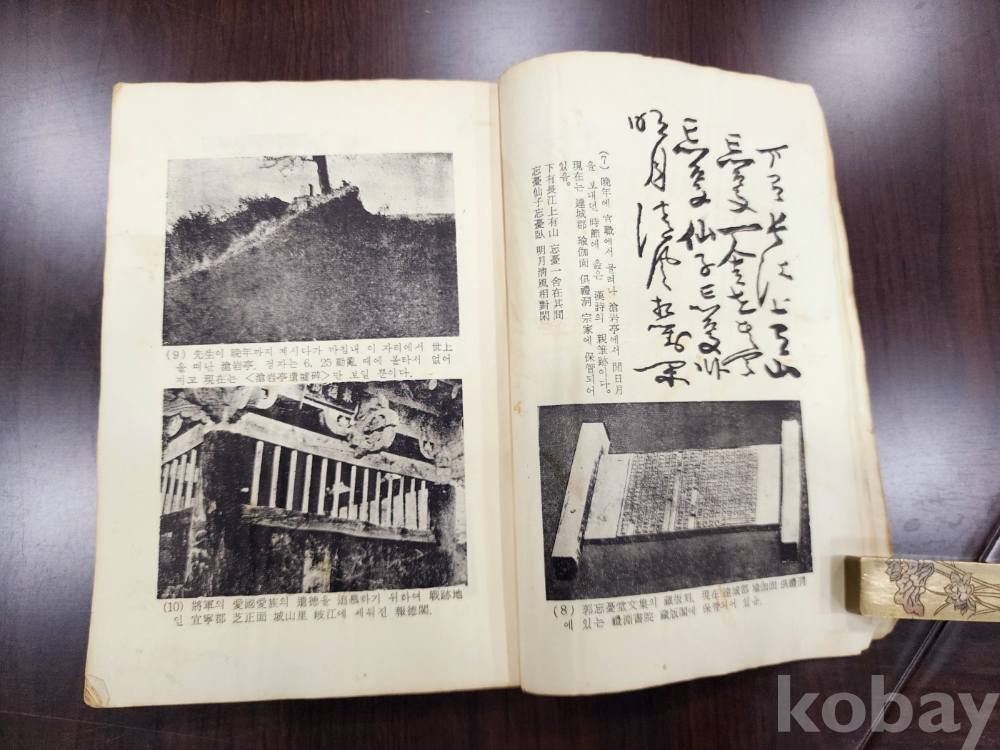 下有長江上有山
忘憂一舍在其間
忘憂仙子忘憂臥
明月清風相對閑
(7) 晩年에 官職에서 물러나 滄岩亭에서 閒日月
을 보내던 時節에 읊은 漢詩의 親筆跡이다。
現在는 達城郡 瑜伽面 俱禮洞 宗家에 保管되어
있음。
下有長江上有山 忘憂一舍在其間
忘憂仙子忘憂臥 明月清風相對閑
(8) 郭忘憂堂文集의 藏版刻. 現在 達城郡 瑜伽面 俱禮洞
에 있는 禮淵書院 藏版閣에 保管되어 있음.
(9) 先生이 晩年까지 계시다가 마침내 이 자리에서 世上
을 떠난 滄岩亭. 정자는 6, 25動亂 때에 불타서 없어
지고 現在는 <滄岩亭遺墟碑>만 보일 뿐이다.
(10) 將軍의 愛國愛族의 遺德을 追慕하기 위하여 戰跡地
인 宜寧郡 芝正面 城山里 岐江에 세워진 報德閣.
kobay